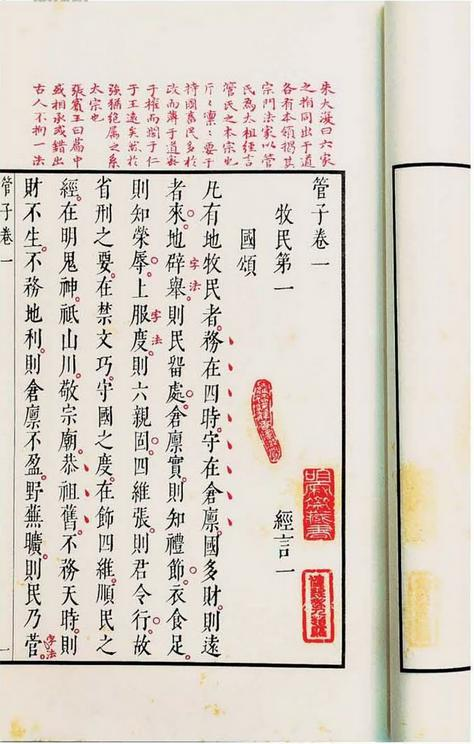 朱大復曰六家
之指同出于道
各有本領揭其
宗門法家以管
氏為太祖經言
管氏之本宗也
斤斤凛凛要于
持國畜民多於
政而薄于道審
于權而闊于仁
于王遠矣然於
強猶絕屬之系
太宗也
張賓王曰篇中
或相承或錯出
古人不拘一法
管子卷一
牧民第一 經言一
國頌
凡有地牧民者務在四時守在倉廩國多財則遠
者來地辟舉則民留處倉廩實則知禮節衣食足
字法
則知榮辱上服度則六親固四維張則君令行故
字法
省刑之要在禁文巧守國之度在飾四維順民之
經在明鬼神祗山川敬宗廟恭祖舊不務天時則
財不生不務地利則倉廩不盈野蕪曠則民乃菅
字法
管子卷一
一